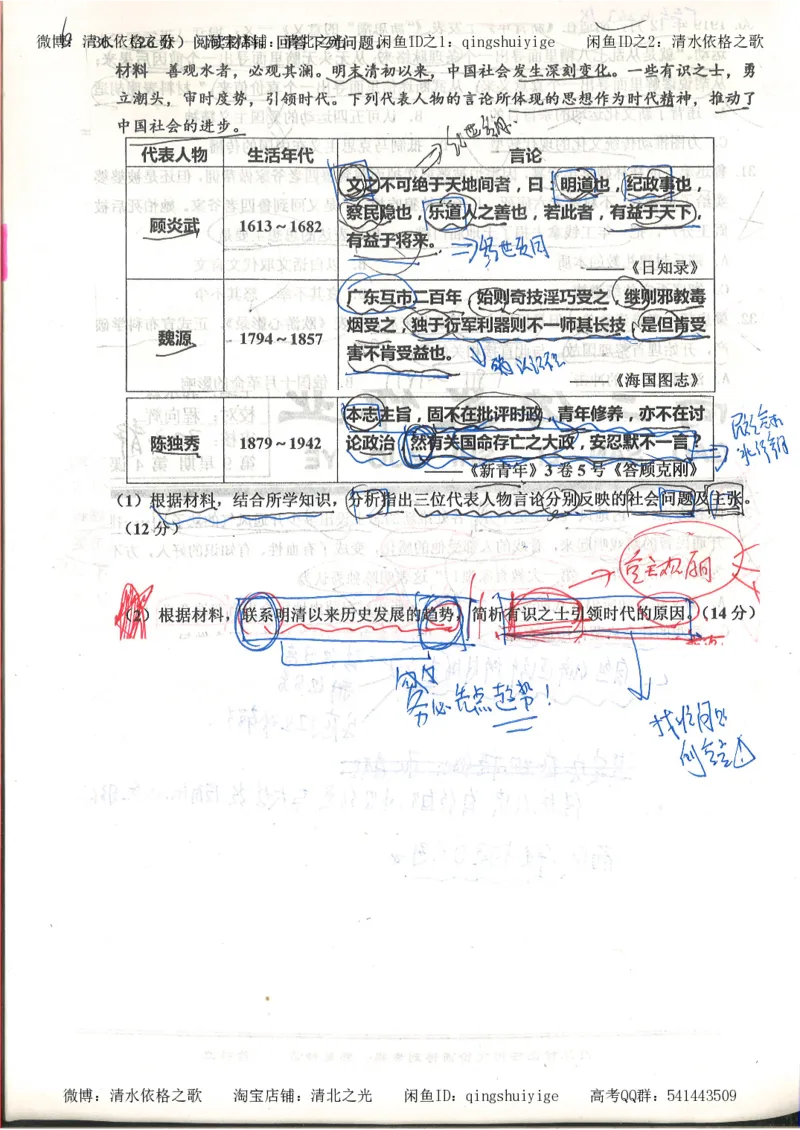 微博：清水依格之歌 淘宝店铺：清北之光 闲鱼ID之1：qingshuiyige 闲鱼ID之2：清水依格之歌
36.（26分）阅读材料，回答下列问题。
材料 善观水者，必观其澜。明末清初以来，中国社会发生深刻变化。一些有识之士，勇
立潮头，审时度势，引领时代。下列代表人物的言论所体现的思想作为时代精神，推动了
中国社会的进步。
经世致用
代表人物 生活年代 言论
顾炎武 1613～1682
文之不可绝于天地间者，曰：明道也，纪政事也，
察民隐也，乐道人之善也，若此者，有益于天下，
有益于将来。 ⇒经世致用
——《日知录》
魏源 1794～1857
广东互市二百年，始则奇技淫巧受之，继则邪教毒
烟受之，独于行军利器则不一师其长技，是但肯受
害不肯受益也。
——《海国图志》
陈独秀 1879～1942
本志主旨，固不在批评时政，青年修养，亦不在讨
论政治，然有关国命存亡之大政，安忍默不一言？
——《新青年》3卷5号《答顾克刚》
（1）根据材料，结合所学知识，分析指出三位代表人物言论分别反映的社会问题及主张。
（12分）
主观原因
（2）根据材料，联系明清以来历史发展的趋势，简析有识之士引领时代的原因。（14分）
务必先点趋势！
微博：清水依格之歌 淘宝店铺：清北之光 闲鱼ID：qingshuiyige 高考QQ群：541443509